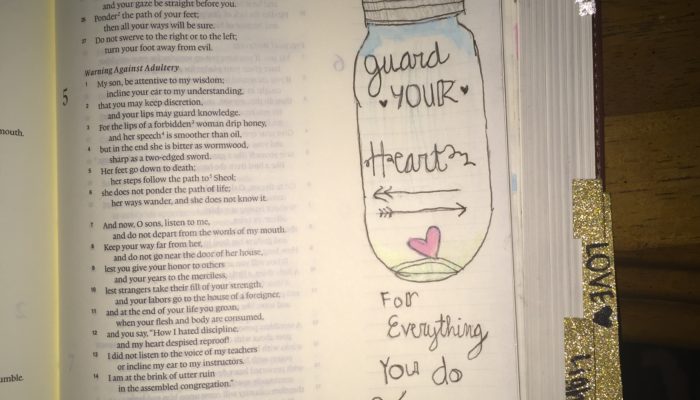 and your gaze be straight before you.
26 Ponder² the path of your feet;
then all your ways will be sure.
27 Do not swerve to the right or to the left;
turn your foot away from evil.
Warning Against Adultery
5
1 My son, be attentive to my wisdom;
incline your ear to my understanding,
2 that you may keep discretion,
and your lips may guard knowledge.
3 For the lips of a forbidden³ woman drip honey,
and her speech⁴ is smoother than oil,
4 but in the end she is bitter as wormwood,
sharp as a two-edged sword.
5 Her feet go down to death;
her steps follow the path to⁵ Sheol;
6 she does not ponder the path of life;
her ways wander, and she does not know it.
7 And now, O sons, listen to me,
and do not depart from the words of my mouth.
8 Keep your way far from her,
and do not go near the door of her house,
9 lest you give your honor to others
and your years to the merciless,
10 lest strangers take their fill of your strength,
and your labors go to the house of a foreigner,
11 and at the end of your life you groan,
when your flesh and body are consumed,
12 and you say, "How I hated discipline,
and my heart despised reproof!
13 I did not listen to the voice of my teachers
or incline my ear to my instructors.
14 I am at the brink of utter ruin
in the assembled congregation."
mouth.
umble.
guard
YOUR
Heart
For
Everything
You do
LOVE